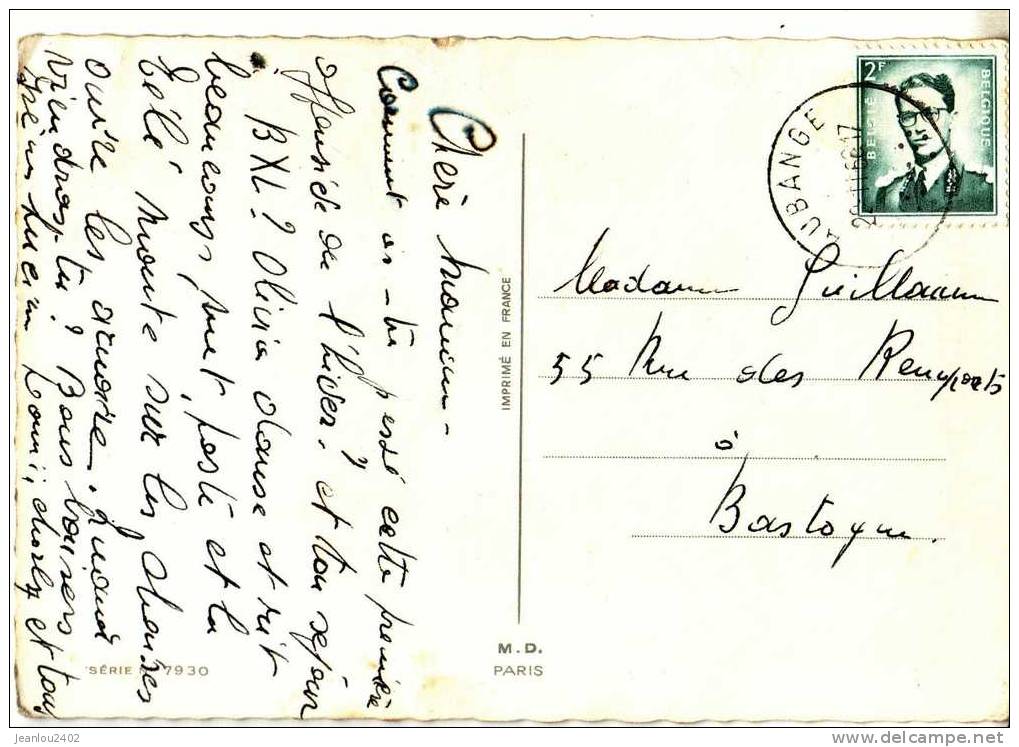 Chère Maman -
Comment as-tu passé cette première
journée de l'hiver? et ton séjour
BXL? Olivia danse et rit
beaucoup, met poste et la
télé monte sur les chaises
ouvre les armoire. Quand
viendras-tu? Bons baisers
Louis, charly et tous
IMPRIMÉ EN FRANCE
M.D.
PARIS
SÉRIE 7930
2F
BELGIË
BELGIQUE
AUBANGE
Madame Guillaume
55 Rue des Remparts
à
Bastogne.
jeanlou2402
www.delcampe.net